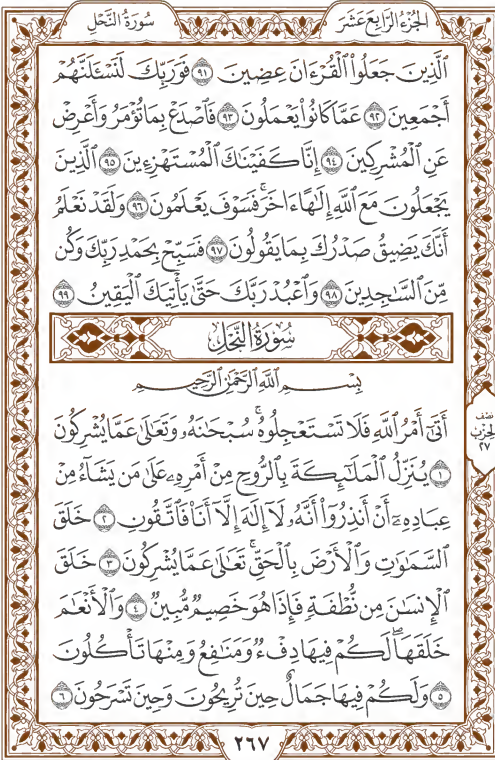 سُورَةُ النَّحْلِ
الجُزْءُ الرَّابِعَ عَشَرَ
ٱلَّذِينَ جَعَلُوا۟ ٱلْقُرْءَانَ عِضِينَ ٩١ فَوَرَبِّكَ لَنَسْـَٔلَنَّهُمْ
أَجْمَعِينَ ٩٢ عَمَّا كَانُوا۟ يَعْمَلُونَ ٩٣ فَٱصْدَعْ بِمَا تُؤْمَرُ وَأَعْرِضْ
عَنِ ٱلْمُشْرِكِينَ ٩٤ إِنَّا كَفَيْنَـٰكَ ٱلْمُسْتَهْزِءِينَ ٩٥ ٱلَّذِينَ
يَجْعَلُونَ مَعَ ٱللَّهِ إِلَـٰهًا ءَاخَرَ ۚ فَسَوْفَ يَعْلَمُونَ ٩٦ وَلَقَدْ نَعْلَمُ
أَنَّكَ يَضِيقُ صَدْرُكَ بِمَا يَقُولُونَ ٩٧ فَسَبِّحْ بِحَمْدِ رَبِّكَ وَكُن
مِّنَ ٱلسَّـٰجِدِينَ ٩٨ وَٱعْبُدْ رَبَّكَ حَتَّىٰ يَأْتِيَكَ ٱلْيَقِينُ ٩٩
سُورَةُ النَّحْلِ
بِسْمِ ٱللَّهِ ٱلرَّحْمَـٰنِ ٱلرَّحِيمِ
أَتَىٰٓ أَمْرُ ٱللَّهِ فَلَا تَسْتَعْجِلُوهُ ۚ سُبْحَـٰنَهُۥ وَتَعَـٰلَىٰ عَمَّا يُشْرِكُونَ
١ يُنَزِّلُ ٱلْمَلَـٰٓئِكَةَ بِٱلرُّوحِ مِنْ أَمْرِهِۦ عَلَىٰ مَن يَشَآءُ مِنْ
عِبَادِهِۦٓ أَنْ أَنذِرُوٓا۟ أَنَّهُۥ لَآ إِلَـٰهَ إِلَّآ أَنَا۠ فَٱتَّقُونِ ٢ خَلَقَ
ٱلسَّمَـٰوَٰتِ وَٱلْأَرْضَ بِٱلْحَقِّ ۚ تَعَـٰلَىٰ عَمَّا يُشْرِكُونَ ٣ خَلَقَ
ٱلْإِنسَـٰنَ مِن نُّطْفَةٍ فَإِذَا هُوَ خَصِيمٌ مُّبِينٌ ٤ وَٱلْأَنْعَـٰمَ
خَلَقَهَا ۗ لَكُمْ فِيهَا دِفْءٌ وَمَنَـٰفِعُ وَمِنْهَا تَأْكُلُونَ
٥ وَلَكُمْ فِيهَا جَمَالٌ حِينَ تُرِيحُونَ وَحِينَ تَسْرَحُونَ ٦
نصف
الحزب
٢٧
٢٦٧